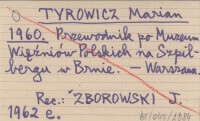 TYROWICZ Marian
1960. Przewodnik po Muzeum
Więźniów Polskich na Szpil-
bergu w Brnie. — Warszawa.
Rec.: ZBOROWSKI J.
1962 e.